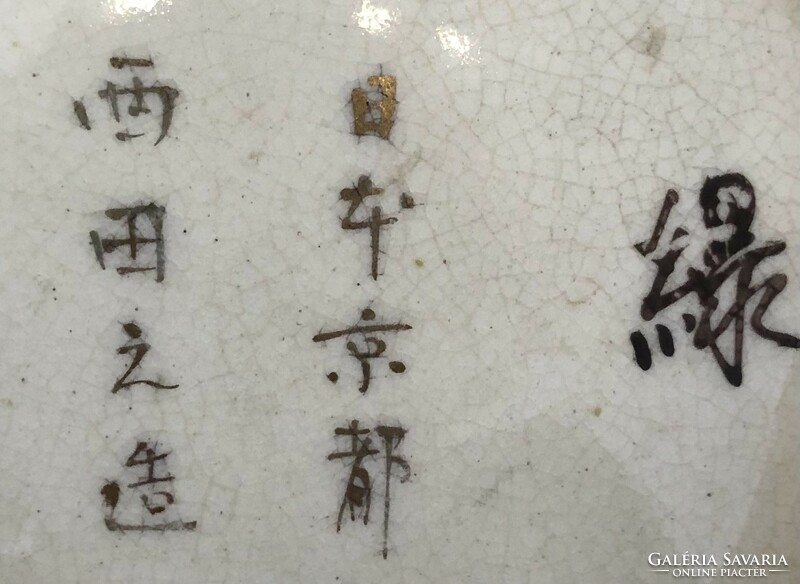 緑
日本京都
西田之造
GALÉRIA SAVARIA
ONLINE PIACTÉR